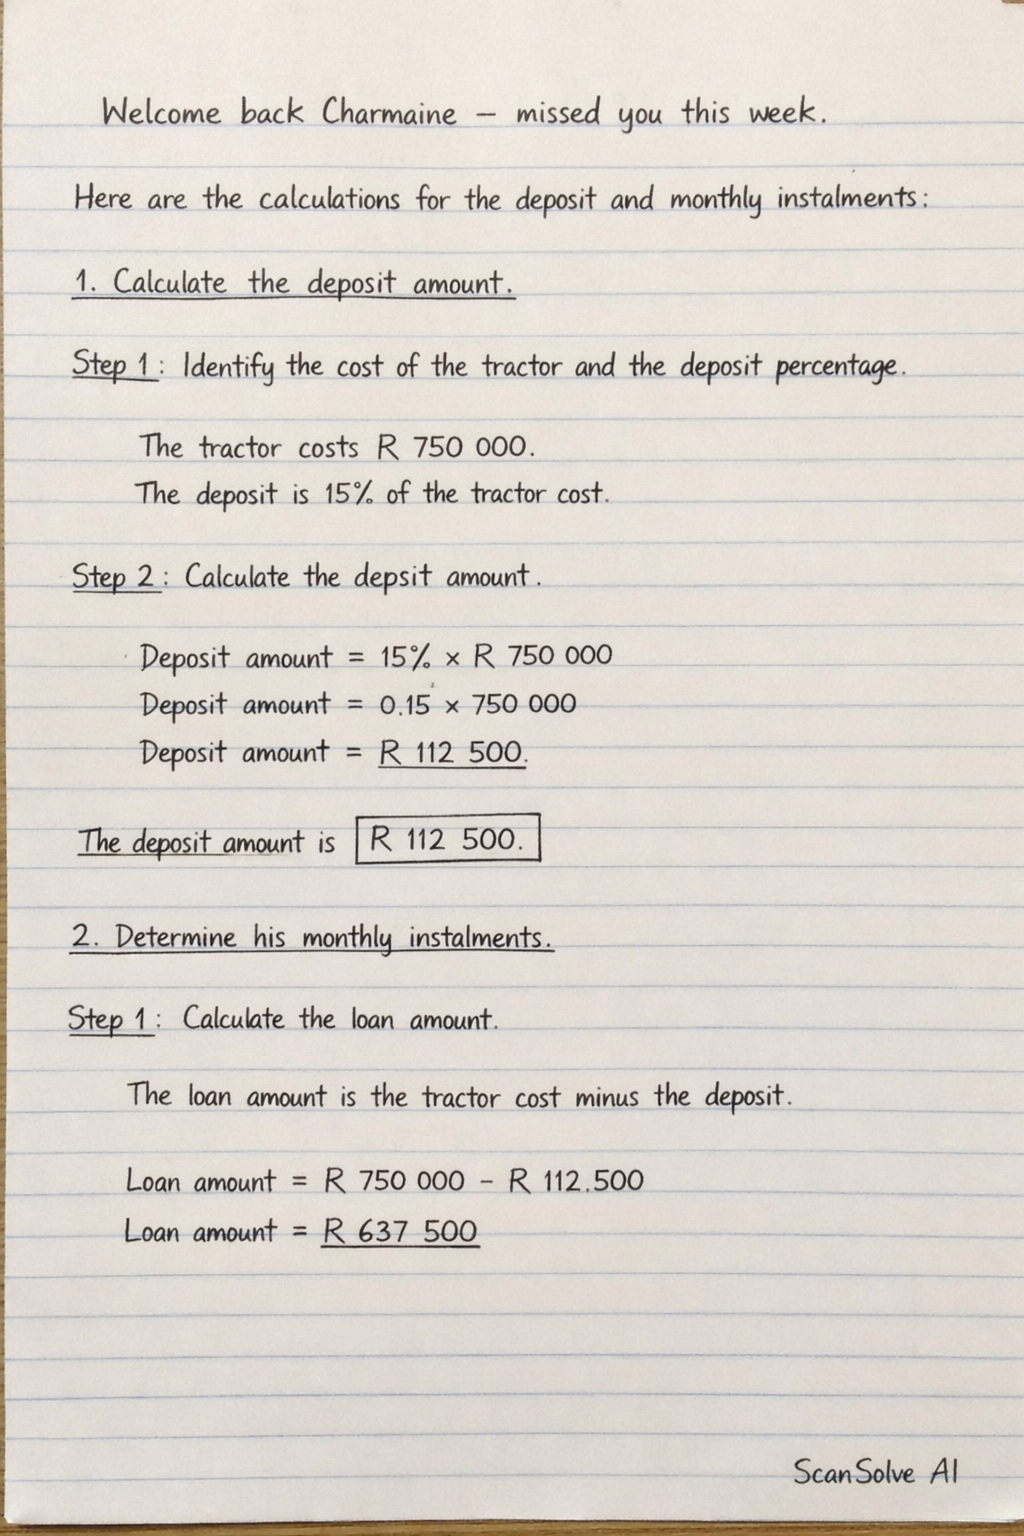 Welcome back Charmaine – missed you this week.
Here are the calculations for the deposit and monthly instalments:
1. Calculate the deposit amount.
Step 1: Identify the cost of the tractor and the deposit percentage.
The tractor costs R 750 000.
The deposit is 15% of the tractor cost.
Step 2: Calculate the depsit amount.
Deposit amount = 15% × R 750 000
Deposit amount = 0.15 × 750 000
Deposit amount = R 112 500.
The deposit amount is R 112 500.
2. Determine his monthly instalments.
Step 1: Calculate the loan amount.
The loan amount is the tractor cost minus the deposit.
Loan amount = R 750 000 – R 112.500
Loan amount = R 637 500
ScanSolve AI